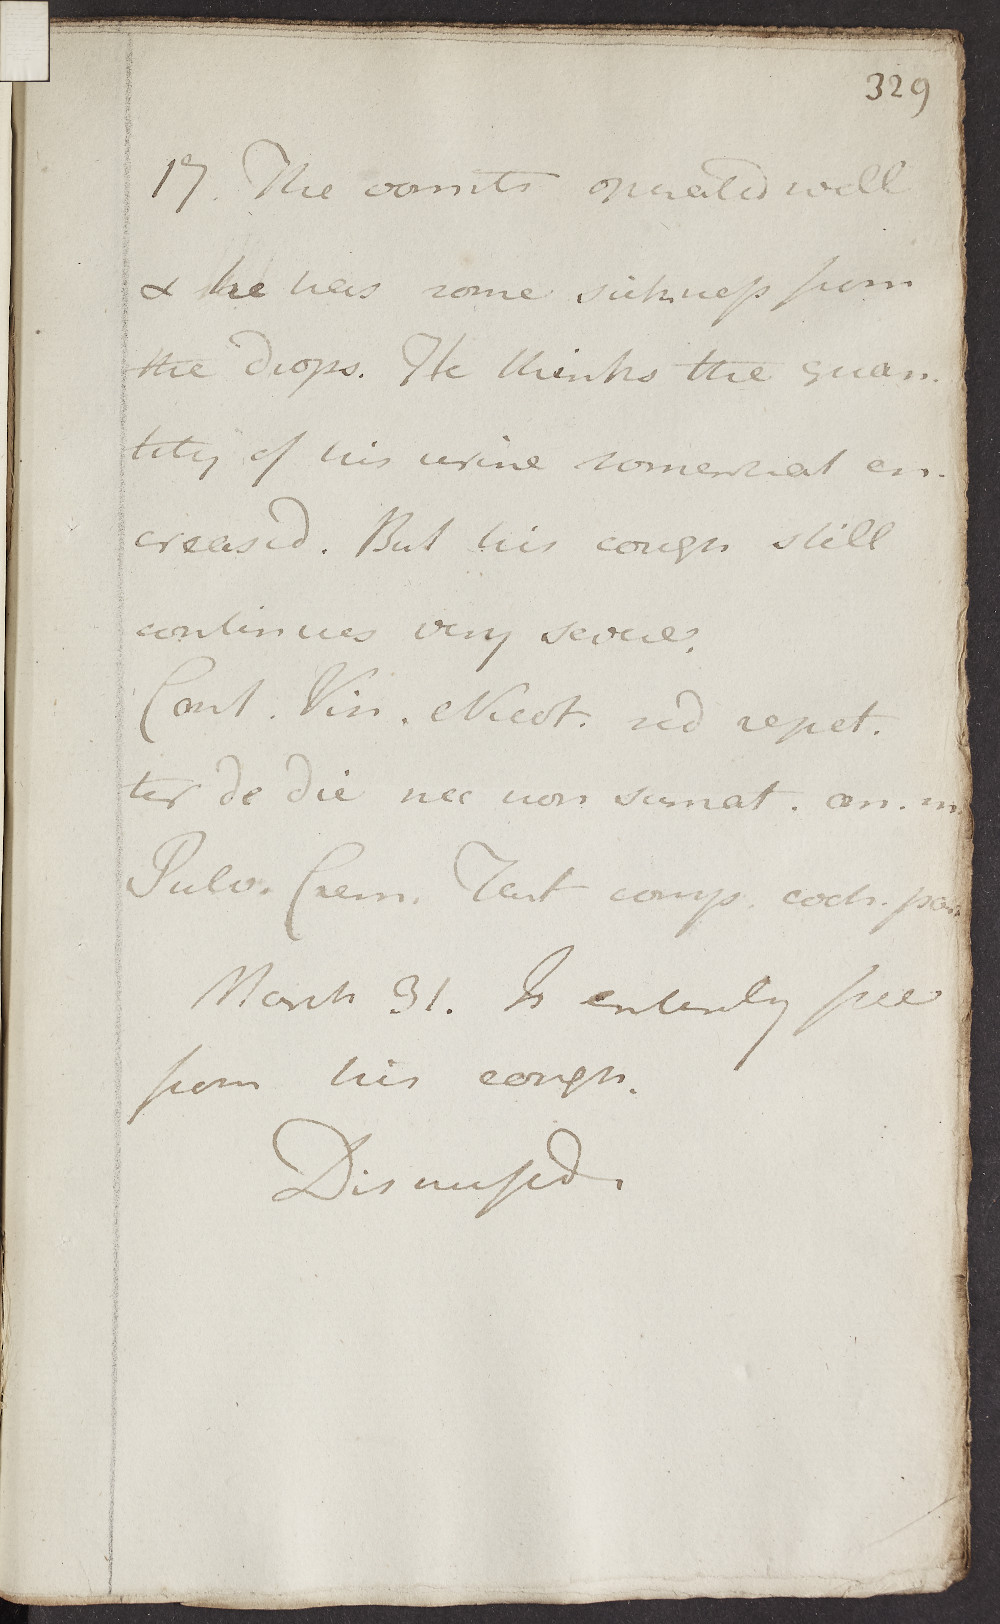 329
17. The vomits operated well
& he has some sickness from
the drops. He thinks the quan-
tity of his urine somewhat en-
creased. But his cough still
continues very severe.
Cont. Vin. Nicot. sed repet.
ter de die nec non sumat. om. m.
Pulv. Crem. Tart comp. coch. parv
March 31. Is entirely free
from his cough.
Dismissed.